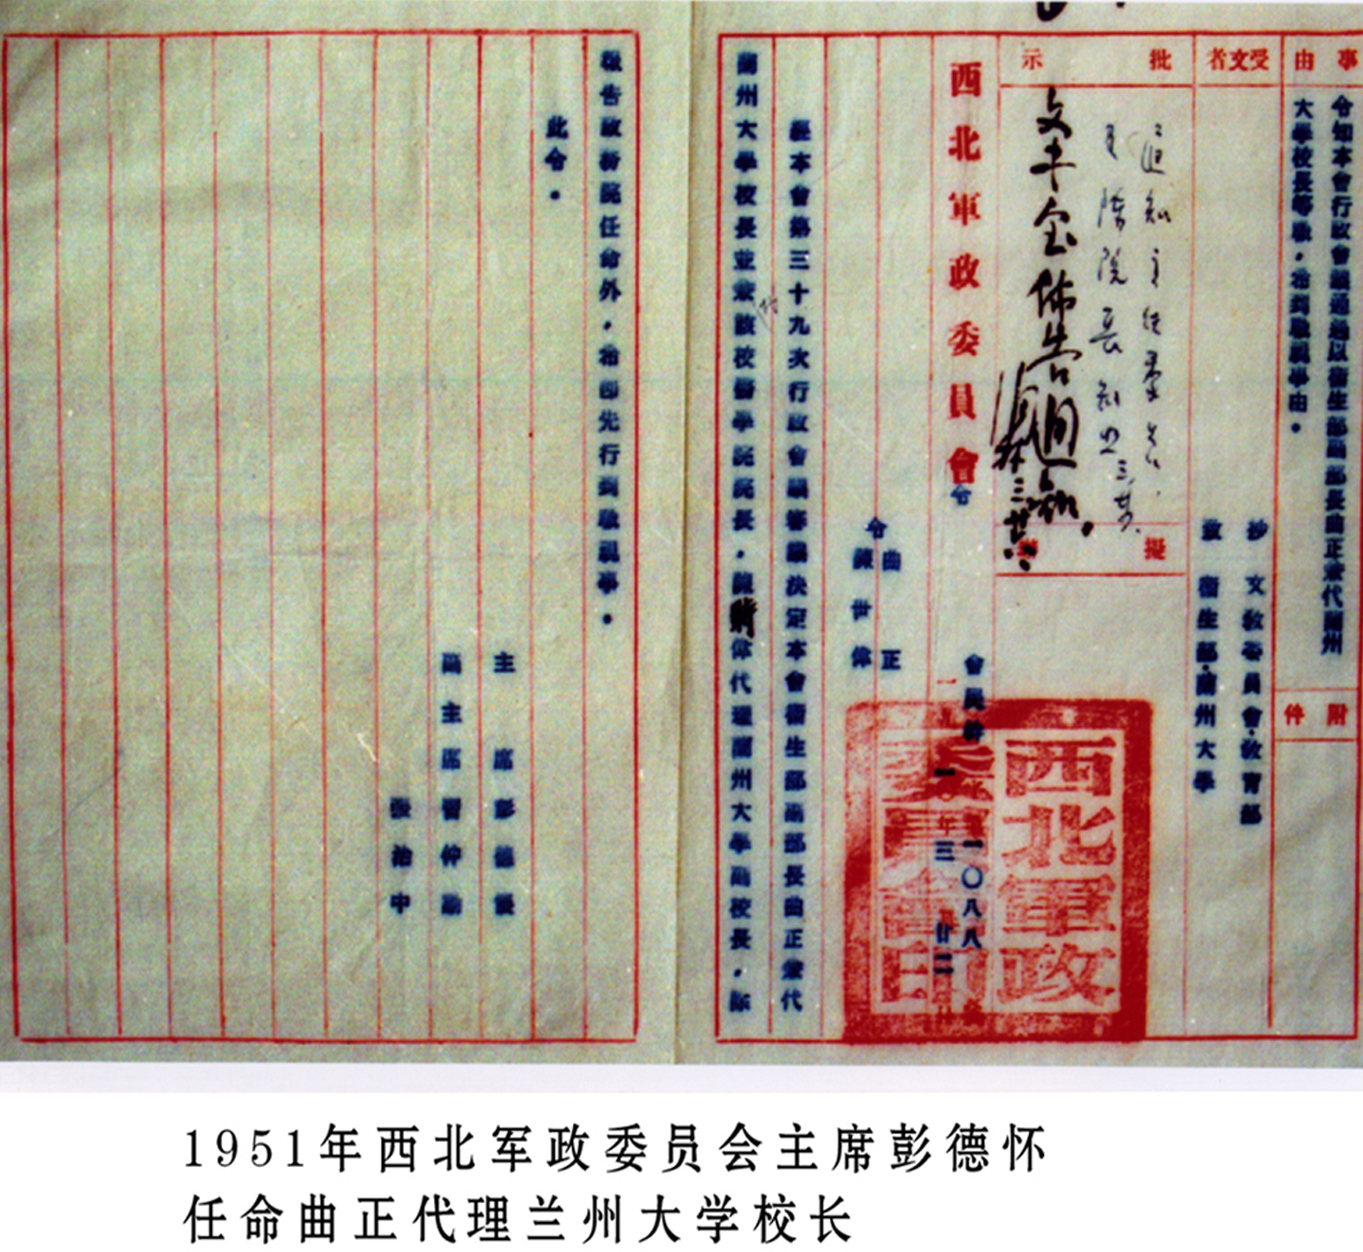 事由
令知本會行政會議通過以衛生部副部長曲正兼代蘭州
大學校長等職，希到職視事由。
附件
受文者
抄 文敎委員會·敎育部
致 衛生部·蘭州大學
批示
擬
西北軍政委員會令
會
字第一〇八八
年三 廿二
西北軍政
委員會印
令曲正
陳世偉
經本會第三十九次行政會議審議決定本會衛生部副部長曲正兼代
蘭州大學校長並兼該校醫學院院長，陳 偉代理蘭州大學副校長，除
報告政務院任命外，希即先行到職視事。
此令。
主席彭德懷
副主席習仲勛
張治中
1951年西北军政委员会主席彭德怀
任命曲正代理兰州大学校长